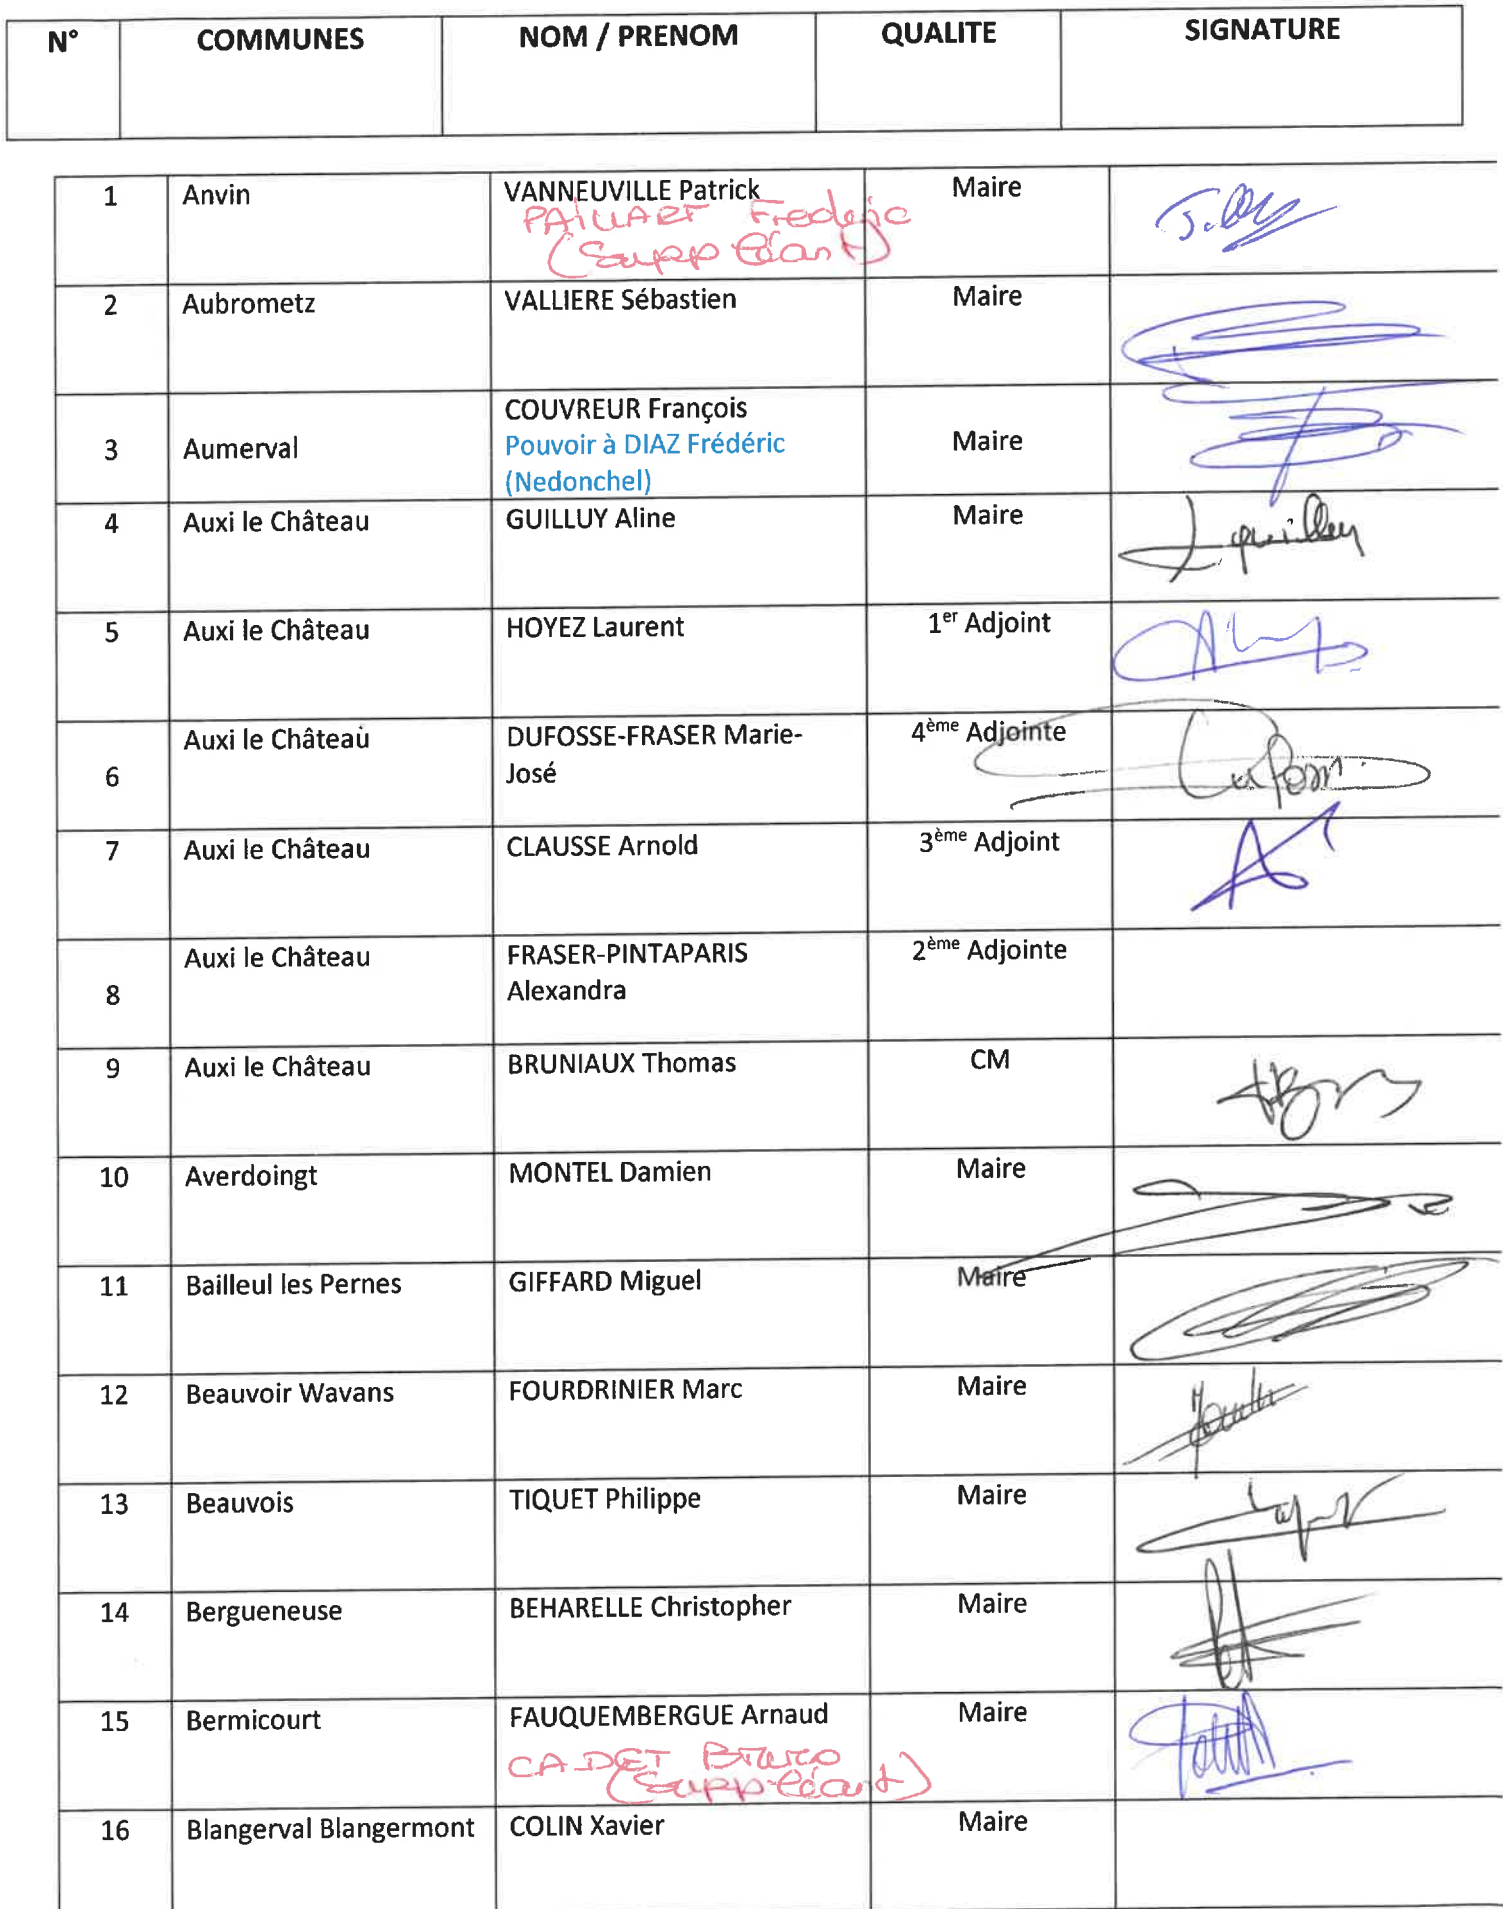 N° COMMUNES NOM / PRENOM QUALITE SIGNATURE
1 Anvin VANNEUVILLE Patrick Maire
PAILLART Frederic
(Suppléant)
2 Aubrometz VALLIERE Sébastien Maire
COUVREUR François
3 Aumerval Pouvoir à DIAZ Frédéric Maire
(Nedonchel)
4 Auxi le Château GUILLUY Aline Maire
5 Auxi le Château HOYEZ Laurent 1er Adjoint
Auxi le Château DUFOSSE-FRASER Marie- 4ème Adjointe
6 José
7 Auxi le Château CLAUSSE Arnold 3ème Adjoint
Auxi le Château FRASER-PINTAPARIS 2ème Adjointe
8 Alexandra
9 Auxi le Château BRUNIAUX Thomas CM
10 Averdoingt MONTEL Damien Maire
11 Bailleul les Pernes GIFFARD Miguel Maire
12 Beauvoir Wavans FOURDRINIER Marc Maire
13 Beauvois TIQUET Philippe Maire
14 Bergueneuse BEHARELLE Christopher Maire
15 Bermicourt FAUQUEMBERGUE Arnaud Maire
CADET Bruno
(Suppléant)
16 Blangerval Blangermont COLIN Xavier Maire